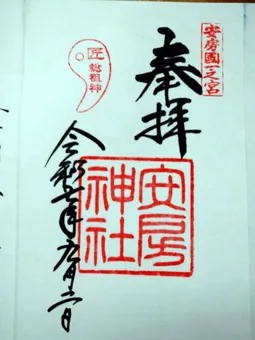 安房國一之宮
奉拝
匠
総祖神
安房
神社
令和七年九月二日